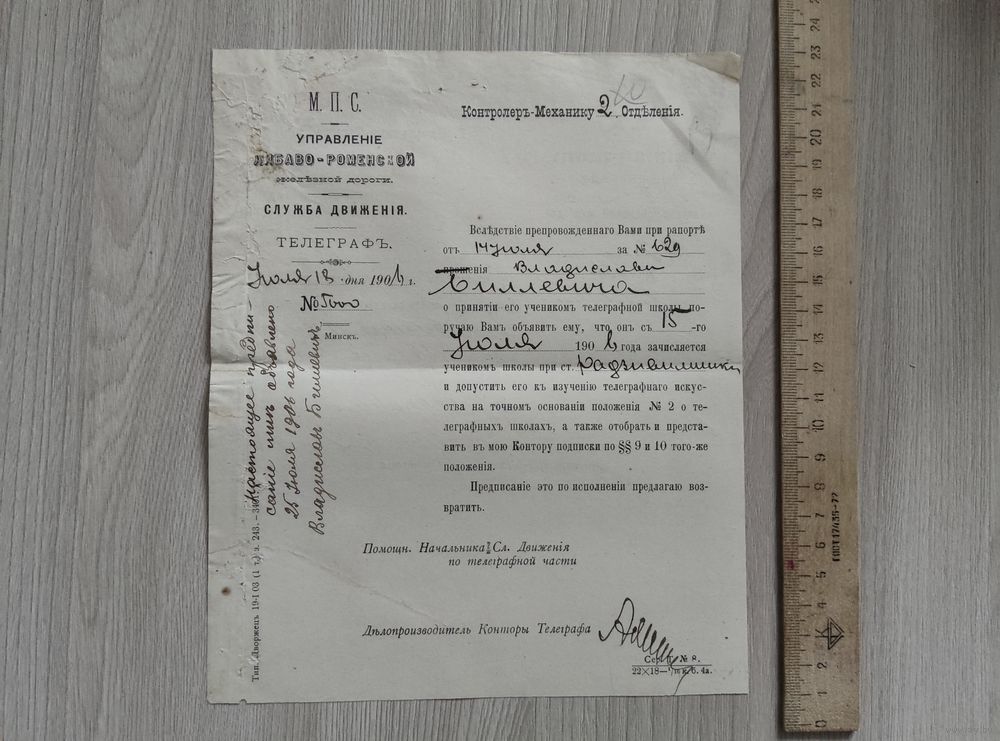 М. П. С.
УПРАВЛЕНІЕ
ЛИБАВО-РОМЕНСКОЙ
желѣзной дороги.
СЛУЖБА ДВИЖЕНІЯ.
ТЕЛЕГРАФЪ.
Іюля 18 дня 1906 г.
№ 5000
Минскъ.
Контролеръ-Механику 2 Отдѣленія.
Вслѣдствіе препровожденнаго Вами при рапортѣ
отъ 14 Іюля за № 629
прошенія Владислава
Биллевича
о принятіи его ученикомъ телеграфной школы по-
ручаю Вамъ объявить ему, что онъ съ 15-го
Іюля 1906 года зачисляется
ученикомъ школы при ст. Радзивилишки
и допустить его къ изученію телеграфнаго искус-
ства на точномъ основаніи положенія № 2 о те-
леграфныхъ школахъ, а также отобрать и предста-
вить въ мою Контору подписки по §§ 9 и 10 того-же
положенія.
Предписаніе это по исполненіи предлагаю воз-
вратить.
Помощн. Начальника Сл. Движенія
по телеграфной части
Дѣлопроизводитель Конторы Телеграфа
№ 8.
22×18— 4а.
Настоящее предпи-
саніе мнѣ объявлено
25 Іюля 1906 года
Владиславъ Биллевичъ
Тип. Дворжецъ 19-I 03 (1 т.) з. 243. –
0 1 2 3 4 5 6 7 8 9 10 11 12 13 14 15 16 17 18 19 20 21 22 23 24
ГОСТ 17435-72